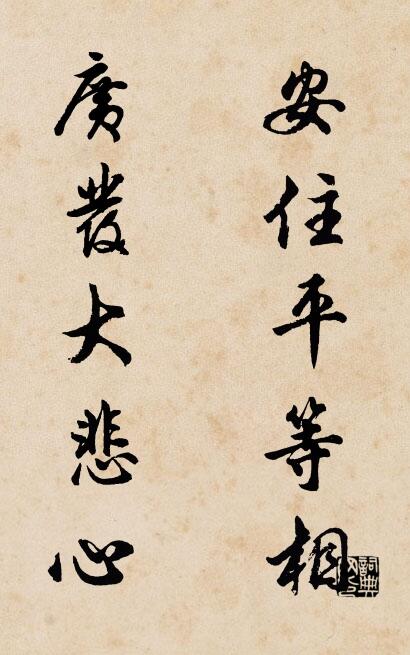 安住平等相
廣發大悲心
詞典